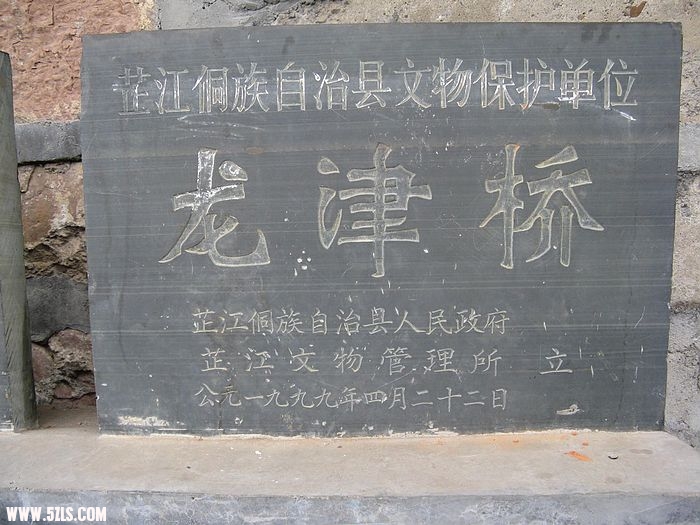 芷江侗族自治县文物保护单位
龙津桥
芷江侗族自治县人民政府
芷江文物管理所 立
公元一九九九年四月二十二日
WWW.5ZLS.COM